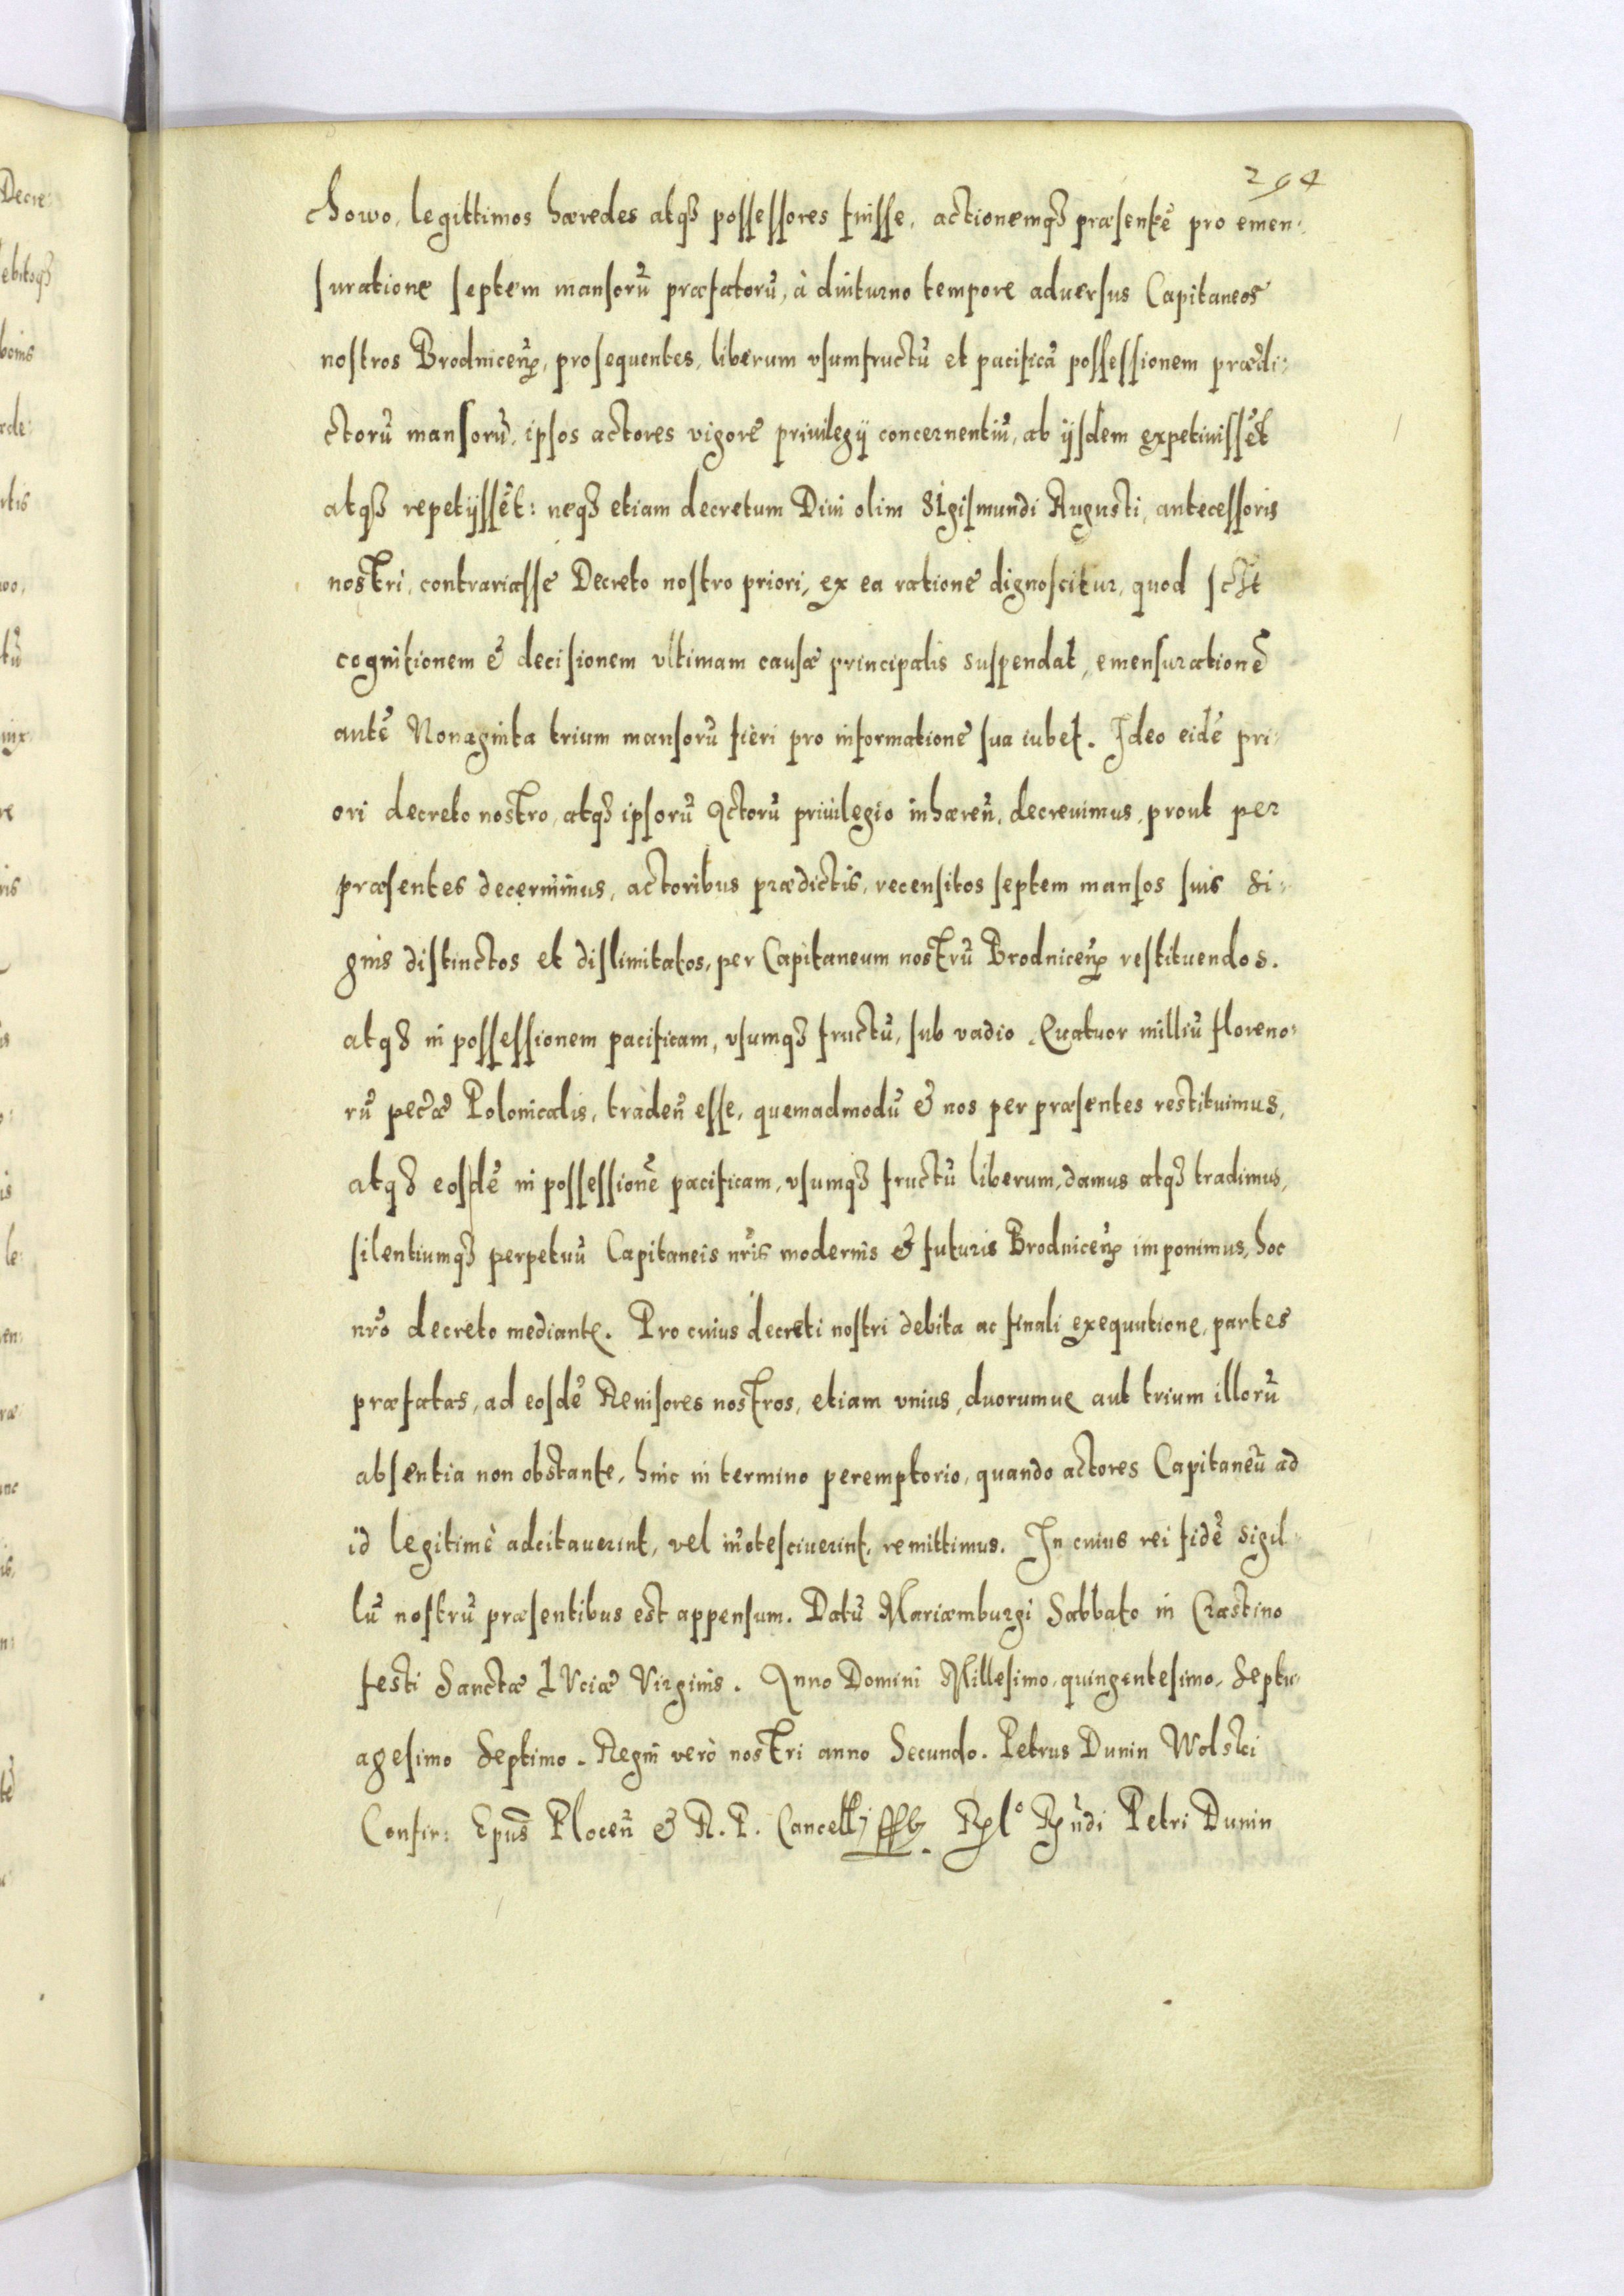 294
chowo, legittimos hæredes atqȝ possessores fuisse, actionemqȝ præsentē pro emen:
suratione septem mansorū præfatorū, à diuturno tempore aduersus Capitaneos
nostros Brodniceñ, prosequentes, liberum vsumfructū et pacificā possessionem prædi:
ctorū mansorū, ipsos actores vigore priuilegij concernentiū, ab ijsdem expetiuissēt
atqȝ repetijssēt: neqȝ etiam decretum Diui olim Sigismundi Augusti, antecessoris
nostri, contrariasse Decreto nostro priori, ex ea ratione dignoscitur, quod
cognitionem & decisionem vltimam causæ principalis suspendat, emensurationē
antē Nonaginta trium mansorū fieri pro informatione sua iubet. Ideo eidē pri:
ori decreto nostro, atqȝ ipsorū Actorū priuilegio inhæreñ, decreuimus, prout per
præsentes decernimus, actoribus prædictis, recensitos septem mansos suis si:
gnis distinctos et dislimitatos, per Capitaneum nostrū Brodniceñ restituendos.
atqȝ in possessionem pacificam, vsumqȝ fructū, sub vadio Quatuor milliū floreno:
rū pecæ Polonicalis, tradeñ esse, quemadmodū & nos per præsentes restituimus,
atqȝ eosdē in possessionē pacificam, vsumqȝ fructū liberum, damus atqȝ tradimus,
silentiumqȝ perpetuū Capitaneis nris modernis & futuris Brodniceñ imponimus, hoc
nro decreto mediante. Pro cuius decreti nostri debita ac finali exequutione, partes
præfatas, ad eosdē Reuisores nostros, etiam vnius, duorumue aut trium illorū
absentia non obstante, hinc in termino peremptorio, quando actores Capitaneū ad
id legitimè adcitauerint, vel iñotesciuerint, remittimus. In cuius rei fidē sigil:
lū nostrū præsentibus est appensum. Datū Mariæmburgi Sabbato in Crastino
festi Sanctæ LUciæ Virginis. Anno Domini Millesimo, quingentesimo, Septu:
agesimo Septimo. Regni verò nostri anno Secundo. Petrus Dunin Wolski
Confir: Epus Ploceñ & R. P. Cancell, Rndi Petri Dunin